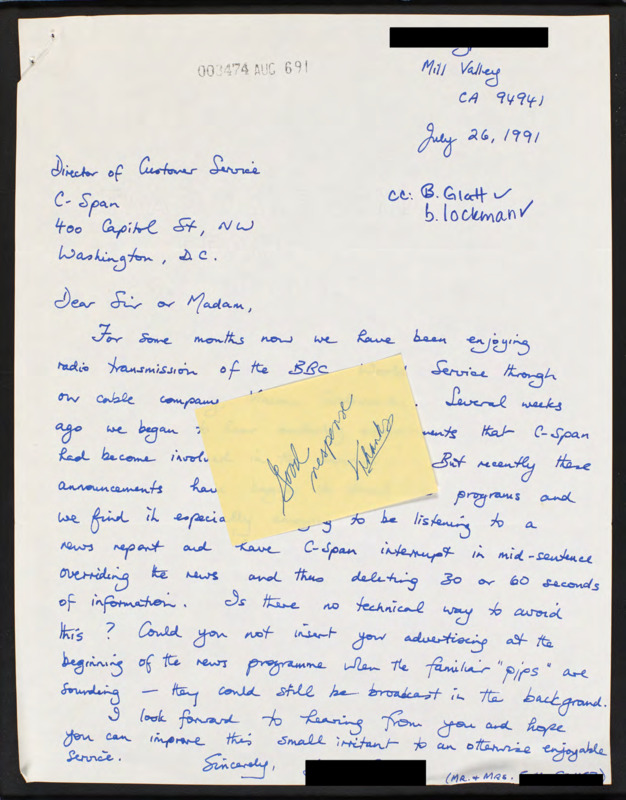 003474 AUG 691
Mill Valley
CA 94941
July 26, 1991
Director of Customer Service
C-Span
400 Capitol St, NW
Washington, D.C.
cc: B. Glatt ✓
b. lockman ✓
Dear Sir or Madam,
For some months now we have been enjoying
radio transmission of the BBC World Service through
our cable company
Several weeks
ago we began
that C-Span
had become
But recently these
announcements have
programs and
we find it
to be listening to a
news report and have C-Span interrupt in mid-sentence
overriding the news and thus deleting 30 or 60 seconds
of information. Is there no technical way to avoid
this? Could you not insert your advertising at the
beginning of the news programme when the familiar "pips" are
sounding — they could still be broadcast in the background.
I look forward to hearing from you and hope
you can improve this small irritant to an otherwise enjoyable
service.
Sincerely,
(MR. + MRS.
Good
response
Thanks